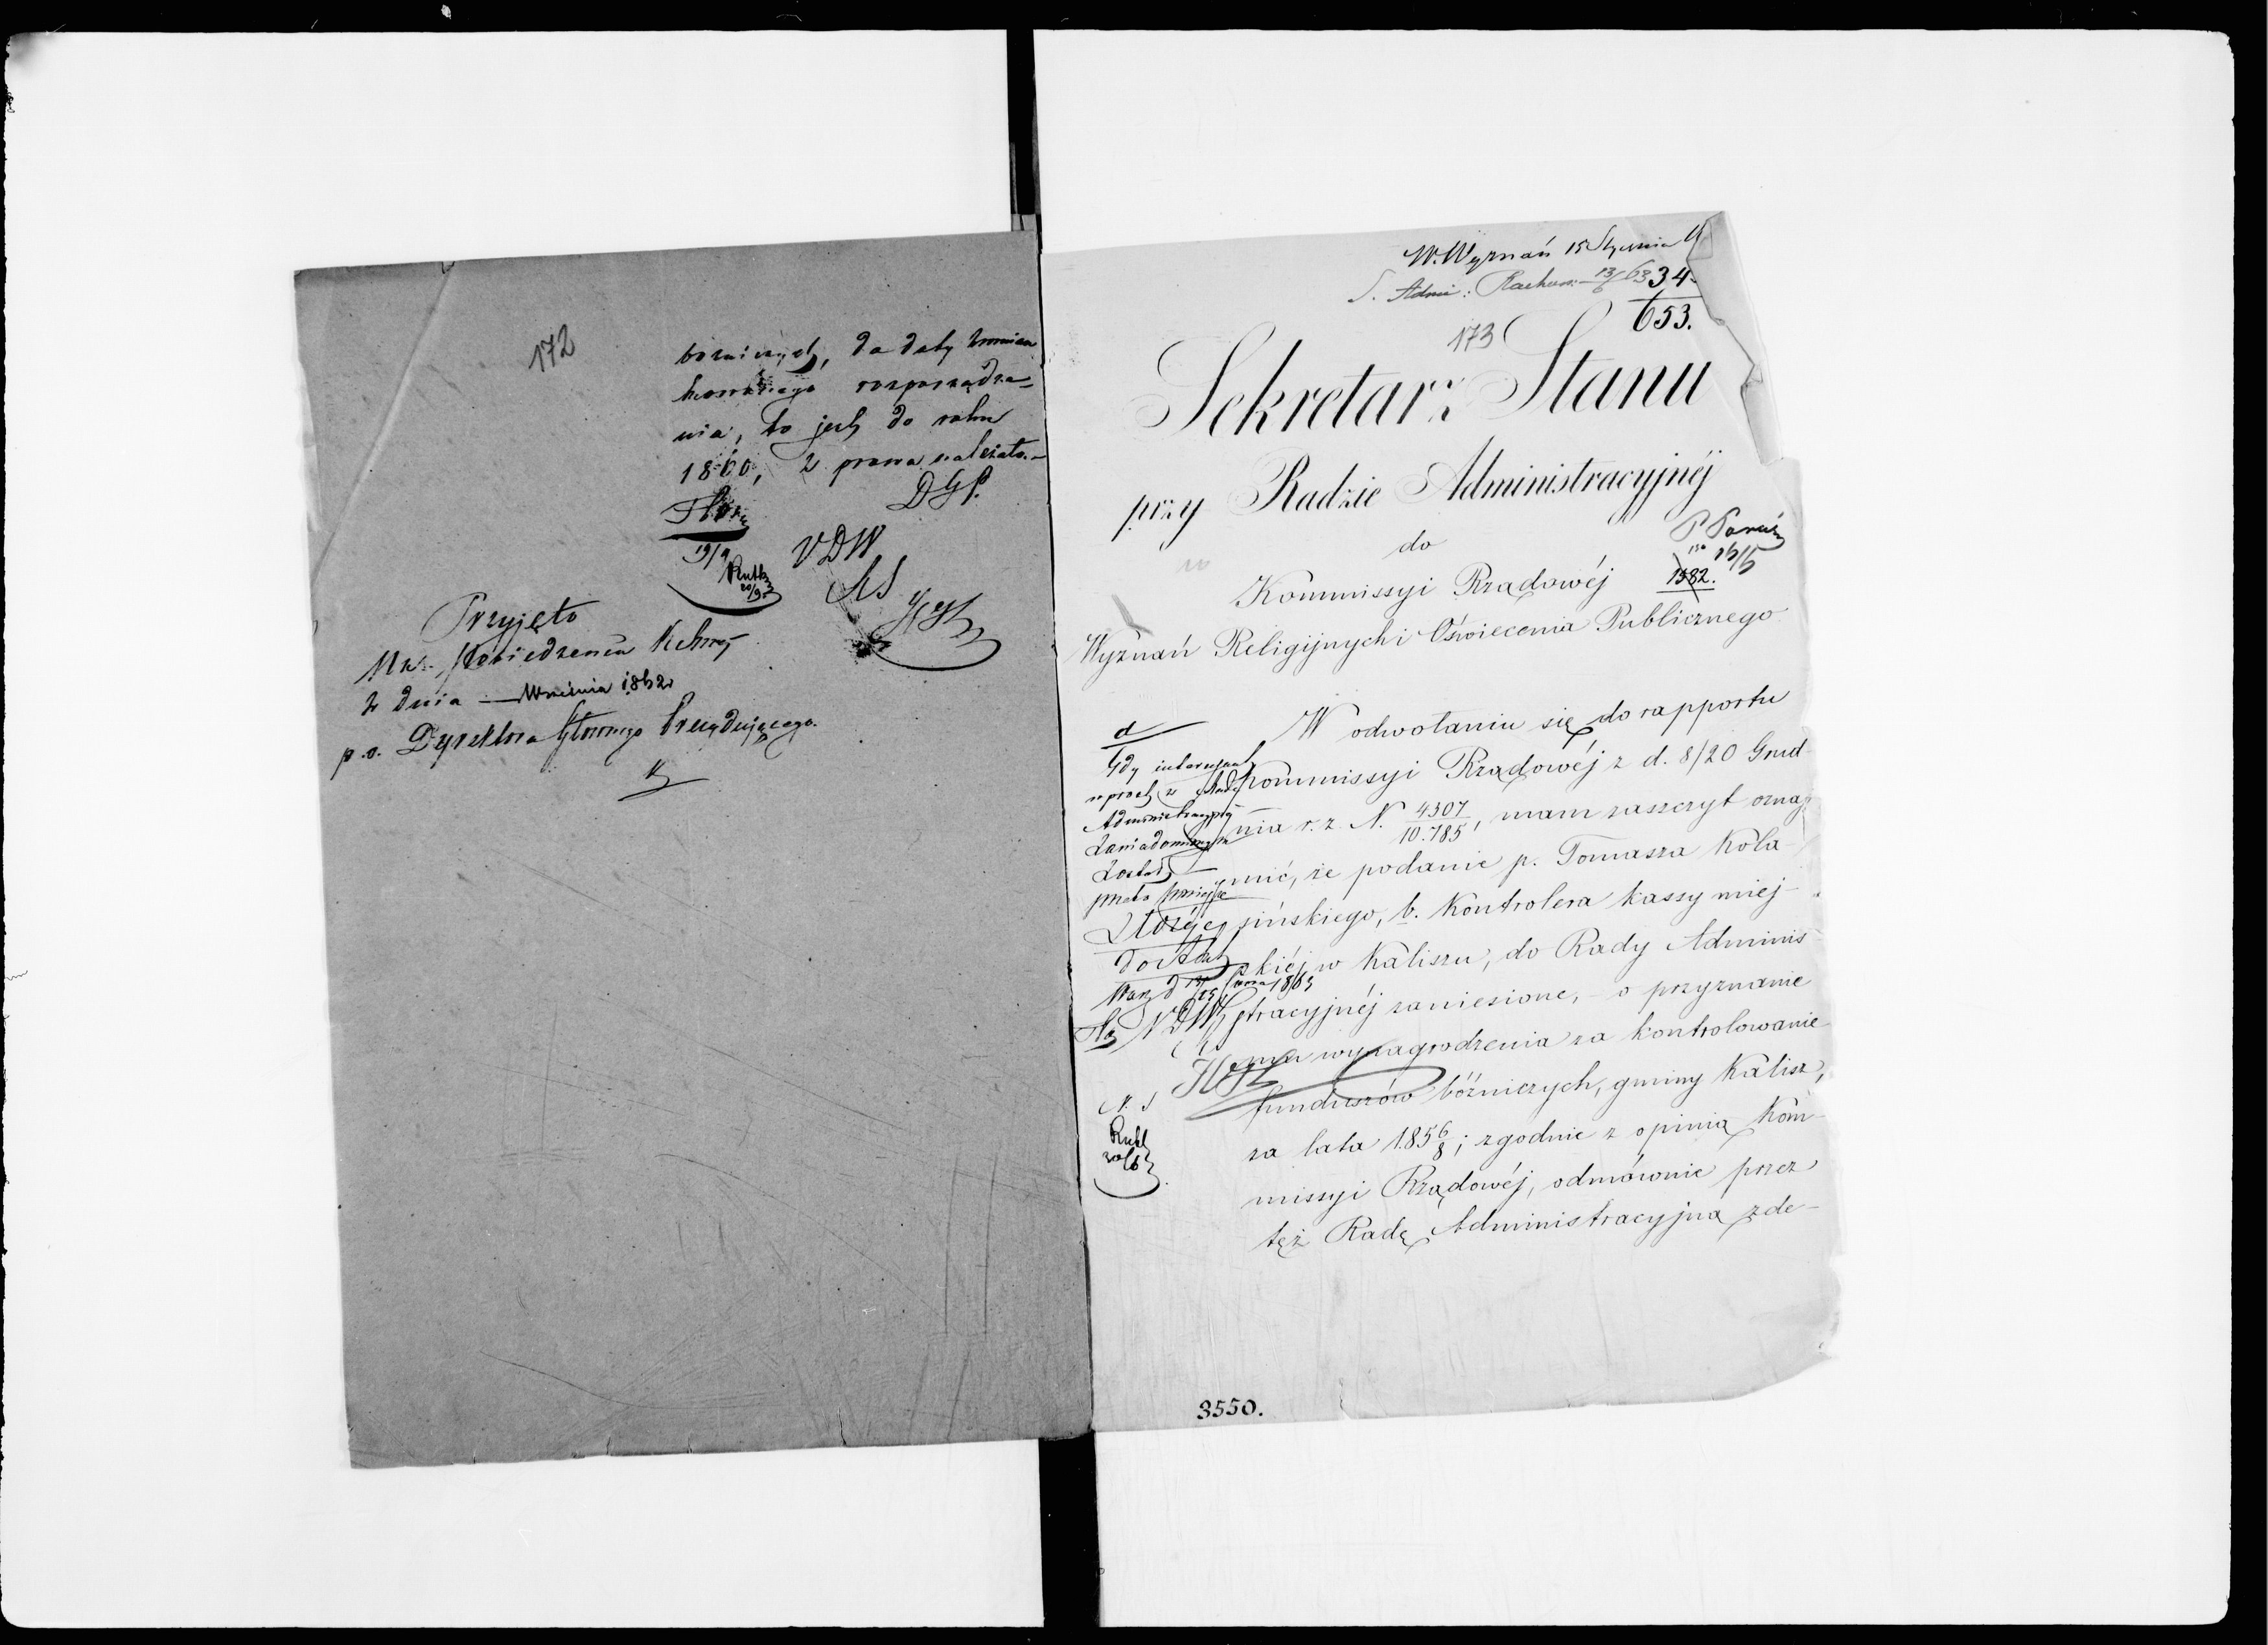 172
bożniczych, do daty wzmian
kowanego rozporządze-
nia, to jest do roku
1860, z prawa należało.-
DGP.
19/9
VDW
Rutk
20/9
Przyjęto
Na Posiedzeniu
z dnia — Września 1862
p.o. Dyrektora Głównego Prezydującego.
W. Wyznań 15 Stycznia
S. Admi: Rachun: 13/6 63 34
653.
173
Sekretarz Stanu
przy Radzie Administracyjnéj
do
Kommissyi Rządowéj
1582.
Wyznań Religijnych i Oświecenia Publicznego
W odwołaniu się do rapportu
Kommissyi Rządowéj z d. 8/20 Grud-
nia r. z. N. 4307/10.785, mam zaszczyt oznaj-
mić, że podanie p. Tomasza Kola-
sińskiego, b. Kontrolera kassy miej-
skiéj w Kaliszu, do Rady Adminis-
tracyjnéj zaniesione, - o przyznanie
mu wynagrodzenia za kontrolowanie
funduszów bóżniczych, gminy Kalisz,
za lata 185 6/8; zgodnie z opinią Kom-
missyi Rządowéj, odmównie przez
też Radę Administracyjną zde-
Gdy interesant
wprost z Rady
Administracyjnej
zawiadomiony
został
przeto niniejsze
złożyć
do Akt
Warz d 13/25 1863
VDW
Rutk
3550.